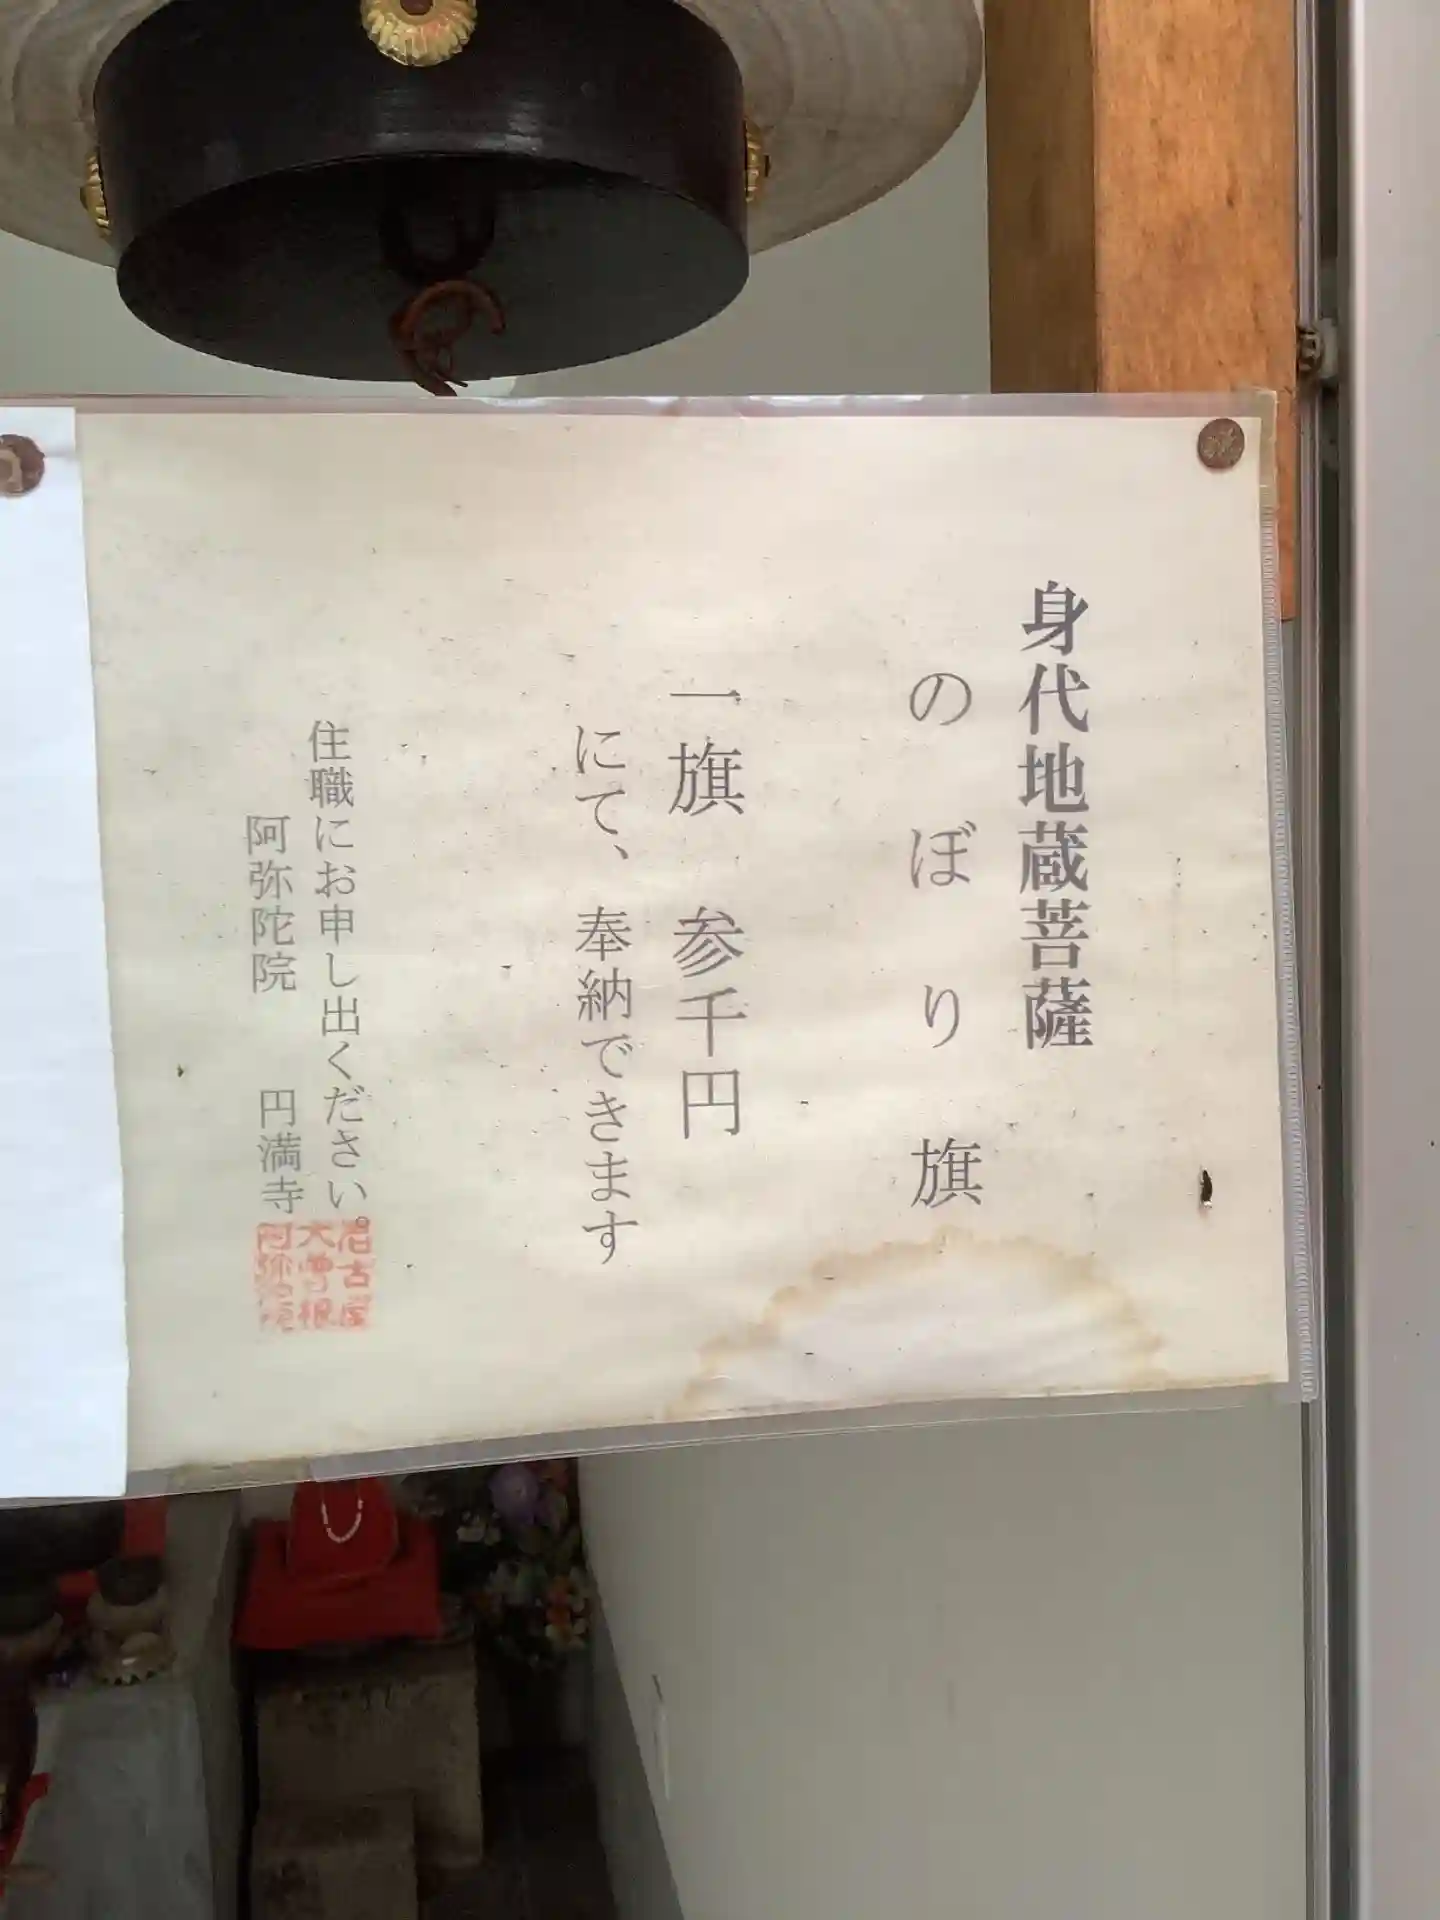 身代地蔵菩薩
のぼり旗
一旗 参千円
にて、奉納できます
住職にお申し出ください。
阿弥陀院 円満寺
名古屋
大曽根
阿弥陀院